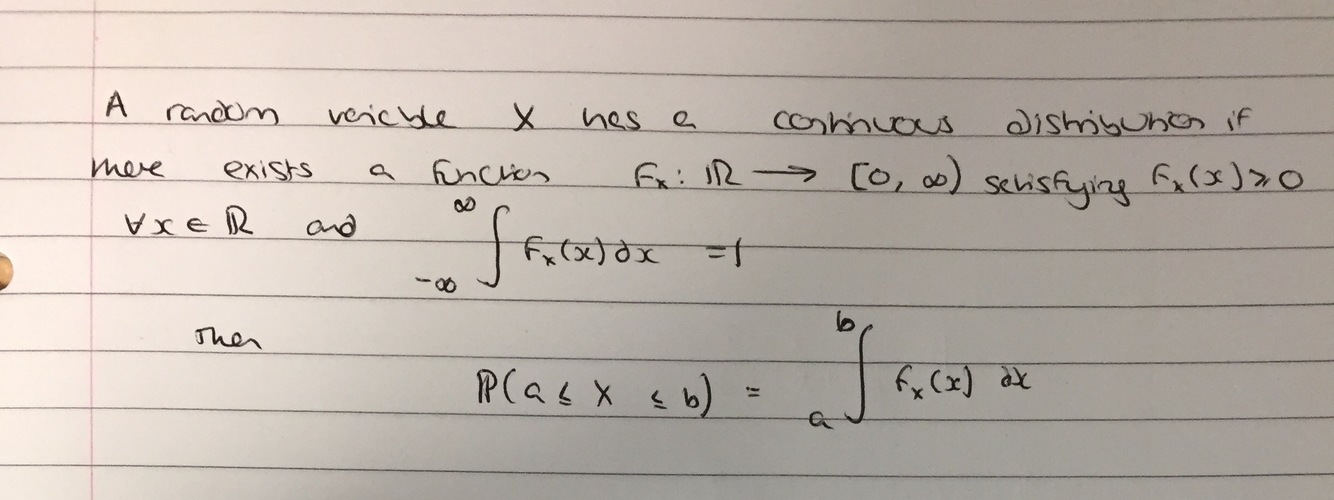 A random variable X has a continuous distribution if
there exists a function Fₓ: ℝ → [0, ∞) satisfying Fₓ(x) ≥ 0
∀x ∈ ℝ and ∫_{-∞}^{∞} Fₓ(x) dx = 1
Then
ℙ(a ≤ X ≤ b) = ∫_{a}^{b} fₓ(x) dx